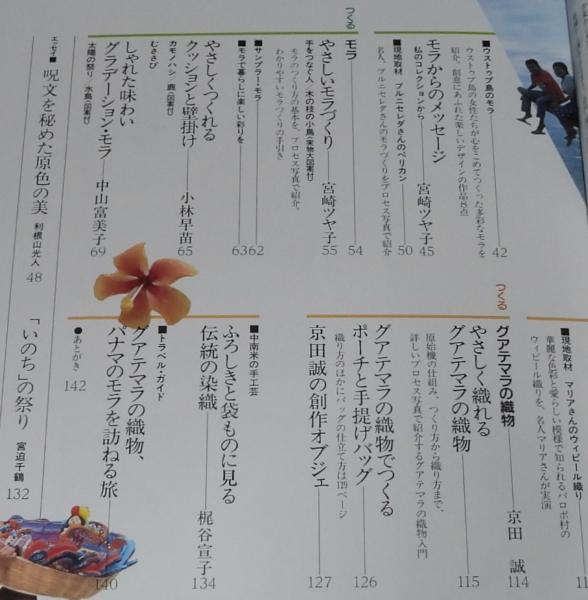 ■ウストゥプ島のモラ
ウストゥプ島の女性たちが心をこめてつくった多彩なモラを
紹介。創意にあふれた楽しいデザインの作品8点
42
モラからのメッセージ
私のコレクションから
宮崎ツヤ子
45
■現地取材 ブルニセレダさんのペリカン
名人、ブルニセレダさんのモラづくりをプロセス写真で紹介
50
つくる
モラ
54
やさしいモラづくり
宮崎ツヤ子
55
手をつなぐ人/木の枝の小鳥(実物大図案付)
モラのつくり方の基本を、プロセス写真で紹介。
わかりやすいモラづくりの手引き
■サンプラー・モラ
62
■モラで暮らしに楽しい彩りを
63
やさしくつくれる
クッションと壁掛け
小林早苗
65
カモノハシ/鹿(図案付)
むささび
しゃれた味わい
グラデーション・モラ
中山富美子
69
太陽の祭り/水鳥(図案付)
エッセイ■
呪文を秘めた原色の美
利根山光人
48
「いのち」の祭り
宮迫千鶴
132
■現地取材 マリアさんのウィピール織り
華麗な色彩と愛らしい模様で知られるパロポ村の
ウィピール織りを、名人マリアさんが実演
11
つくる
グアテマラの織物
114
やさしく織れる
グアテマラの織物
京田 誠
115
原始機の仕組み、つくり方から織り方まで、
詳しいプロセス写真で紹介するグアテマラの織物入門
グアテマラの織物でつくる
ポーチと手提げバッグ
126
織り方のほかにバッグの仕立て方は129ページ
京田誠の創作オブジェ
127
■中南米の手工芸
ふろしきと袋ものに見る
伝統の染織
梶谷宣子
134
■トラベル・ガイド
グアテマラの織物、
パナマのモラを訪ねる旅
140
●あとがき
142